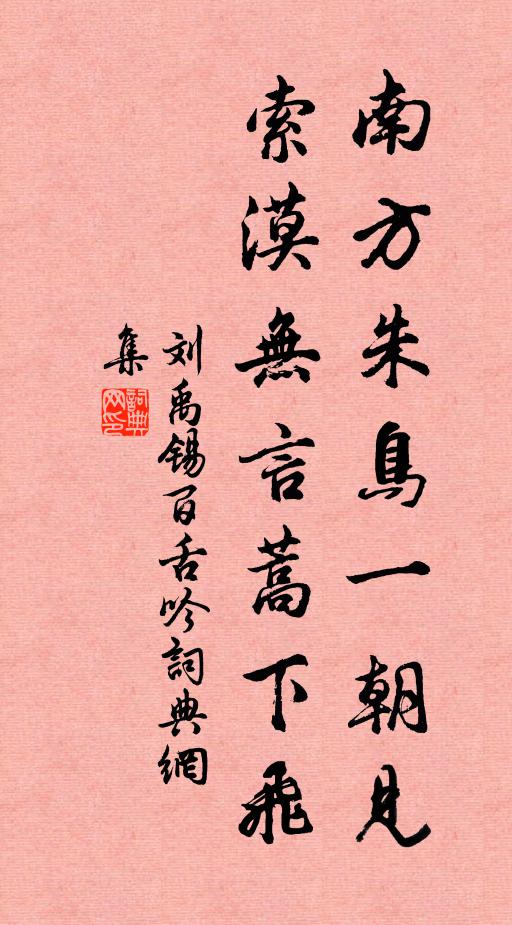 南方朱鳥一朝見
索漠無言蒿下飛
刘禹锡百舌吟詞典網
集
詞典
网印